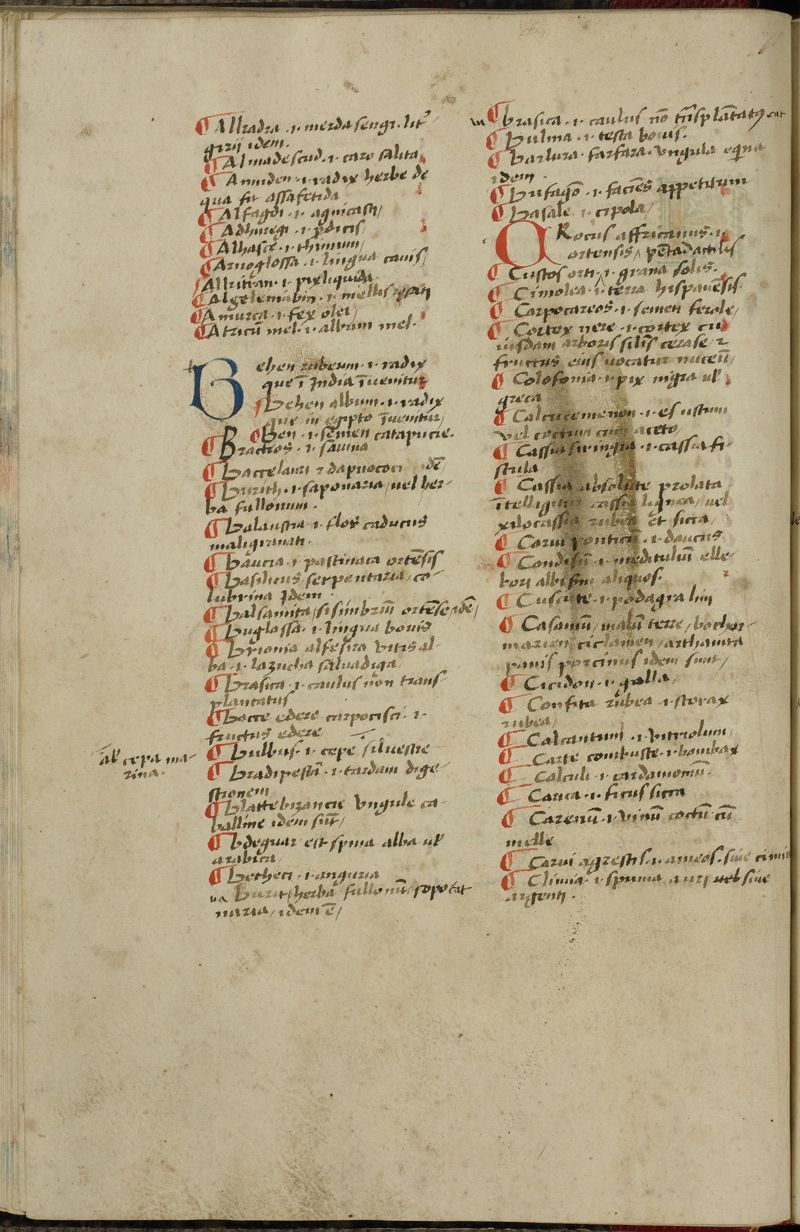 ¶ Allzadza .i. merda sengi. lit
girij idem.
¶ Almadescud .i. caro salita
¶ Amiden .i. radix herbe de
qua fit assafetida
¶ Alfagdi .i. agnicasti
¶ Adhuregi .i. pdicis
¶ Alhasce .i. thimum
¶ Arnoglossa .i. lingua canis
Alkitran .i. pix liquida
¶ Algelemabin .i. mellis rosati
¶ Amurca .i. fex olei
¶ Atricū mel .i. album mel.
Behen rubeum .i. radix
que ī India īuenitur
¶ Behen album .i. radix
que in egipto īuenitur
¶ Ben .i. semen catapucie.
¶ Bracteos .i. sauina
¶ Baccelauri &
¶ Burith .i. saponaria, uel her-
ba fullonum.
¶ Balaustia .i. flos caducus
maligranati.
¶ Baucia .i. pastinaca ortēsis
¶ Basilicus serpentaria, co-
lubrina Idem
¶ Balsamita, sisimbriū ortēse, idē
¶ Buglossa .i. lingua bouis
¶ Brionia alfesira Vitis al-
ba .i. lazucha saluadiga
¶ Brasica .i. caulus non trans
plantatus
¶ Bacce edere carpocisci .i.
fructus edere
¶ Bulbus .i. cepe siluestre
al cepa ma-
rina.
¶ Bradipestā .i. tardam dige-
stionem
¶ Blattebizancie Vngule ca-
balline idem sūt
¶ Bdeguar est spina alba ul
arabica
¶ Becheci .i. anguria
va Burit herba fullonū, sopo cat
naria, idem ē
va ¶ Brasica .i. caulus nō trāsplātatꝰ cat
¶ Bulma .i. testa bouis.
¶ Barbura. farfara. Vngula eqina
idem
¶ Bufagō .i. faciēs appetitum
¶ Basale .i. cipola
CRocus affricanus .i.
ortensis, pētadactilis
¶ Custos orti .i. grana solis.
¶ Cimolea .i. terra hispanēsis
¶ Carpocareos .i. semen ferole
¶ Cortex nere .i. cortex cu
iusdam arboris silīs cerase, &
fructus eius uocatur nuceū
¶ Colofonia .i. pix nigra ul
greca
¶ Calcucemenon .i. es ustum
vel coctum cum aceto
¶ Cassia siringia .i. cassia fi-
stula
¶ Cassia absolute prolata
ītelligitur cassia lignea, uel
xilocassia rubea et sicca
¶ Carui ponticū .i. daucus
¶ Condisū .i. meditulliū elle
bori albi aliquos.
¶ Cuscute .i. podagra lini
¶ Casamū, malū terre, bothor-
marien ciclamen, arthanita
panis porcinus idem sunt
¶ Cicidon .i. galla
¶ Confita rubea .i. storax
rubea
¶ Calcantum .i. vitriolum
¶ Carte combuste .i. bambax
¶ Calculi .i. cardamomū.
¶ Carica .i. ficus sicca
¶ Carenū .i. vinū coctū cū
melle
¶ Carui agrestis .i. ameos. siue cimi
¶ Climia .i. spuma auri uel siue
argenti.